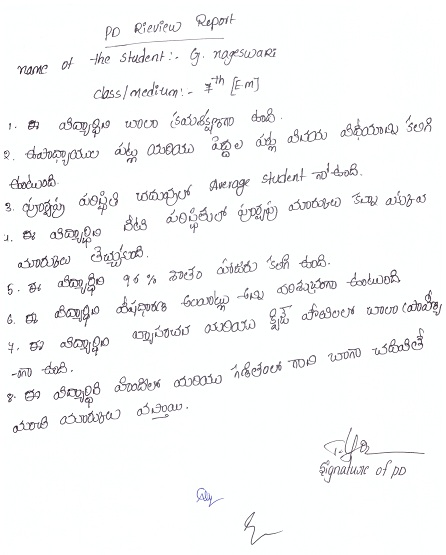 PD Rieview Report
name of the student:- G. nageswari
class/medium:- 7th [E.m]
1. ఈ విద్యార్థిని చాలా క్రమశిక్షణగా ఉంది.
2. ఉపాధ్యాయుల పట్ల మరియు పెద్దల పట్ల వినయ విధేయతలు కలిగి
ఉంటుంది.
3. పూర్వపు పరిస్థితి చదువులో Average student గా ఉంది.
4. ఈ విద్యార్థిని నేటి పరిస్థితులో పూర్వపు మార్కుల కన్నా ఎక్కువ
మార్కులు తెచ్చుకుంది.
5. ఈ విద్యార్థిని 96% శాతం హాజరు కలిగి ఉంది.
6. ఈ విద్యార్థిని వేషధారణ అలవాట్లు అన్ని పరిశుభ్రంగా ఉంటుంది
7. ఈ విద్యార్థిని వ్యాసరచన మరియు క్విజ్ పోటీలలో చాలా
-గా ఉంది.
8. ఈ విద్యార్థిని హిందీలో మరియు గణితంలో గాని బాగా చదివితే
మంచి మార్కులు వస్తాయి.
Signature of PD